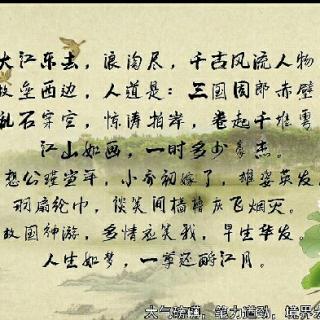 大江东去，浪淘尽，千古风流人物
故垒西边，人道是：三国周郎赤壁
乱石穿空，惊涛拍岸，卷起千堆雪
江山如画，一时多少豪杰。
想公瑾当年，小乔初嫁了，雄姿英发，
羽扇纶巾，谈笑间樯橹灰飞烟灭。
故国神游，多情应笑我，早生华发。
人生如梦，一尊还酹江月。
大气磅礴，笔力遒劲，境界